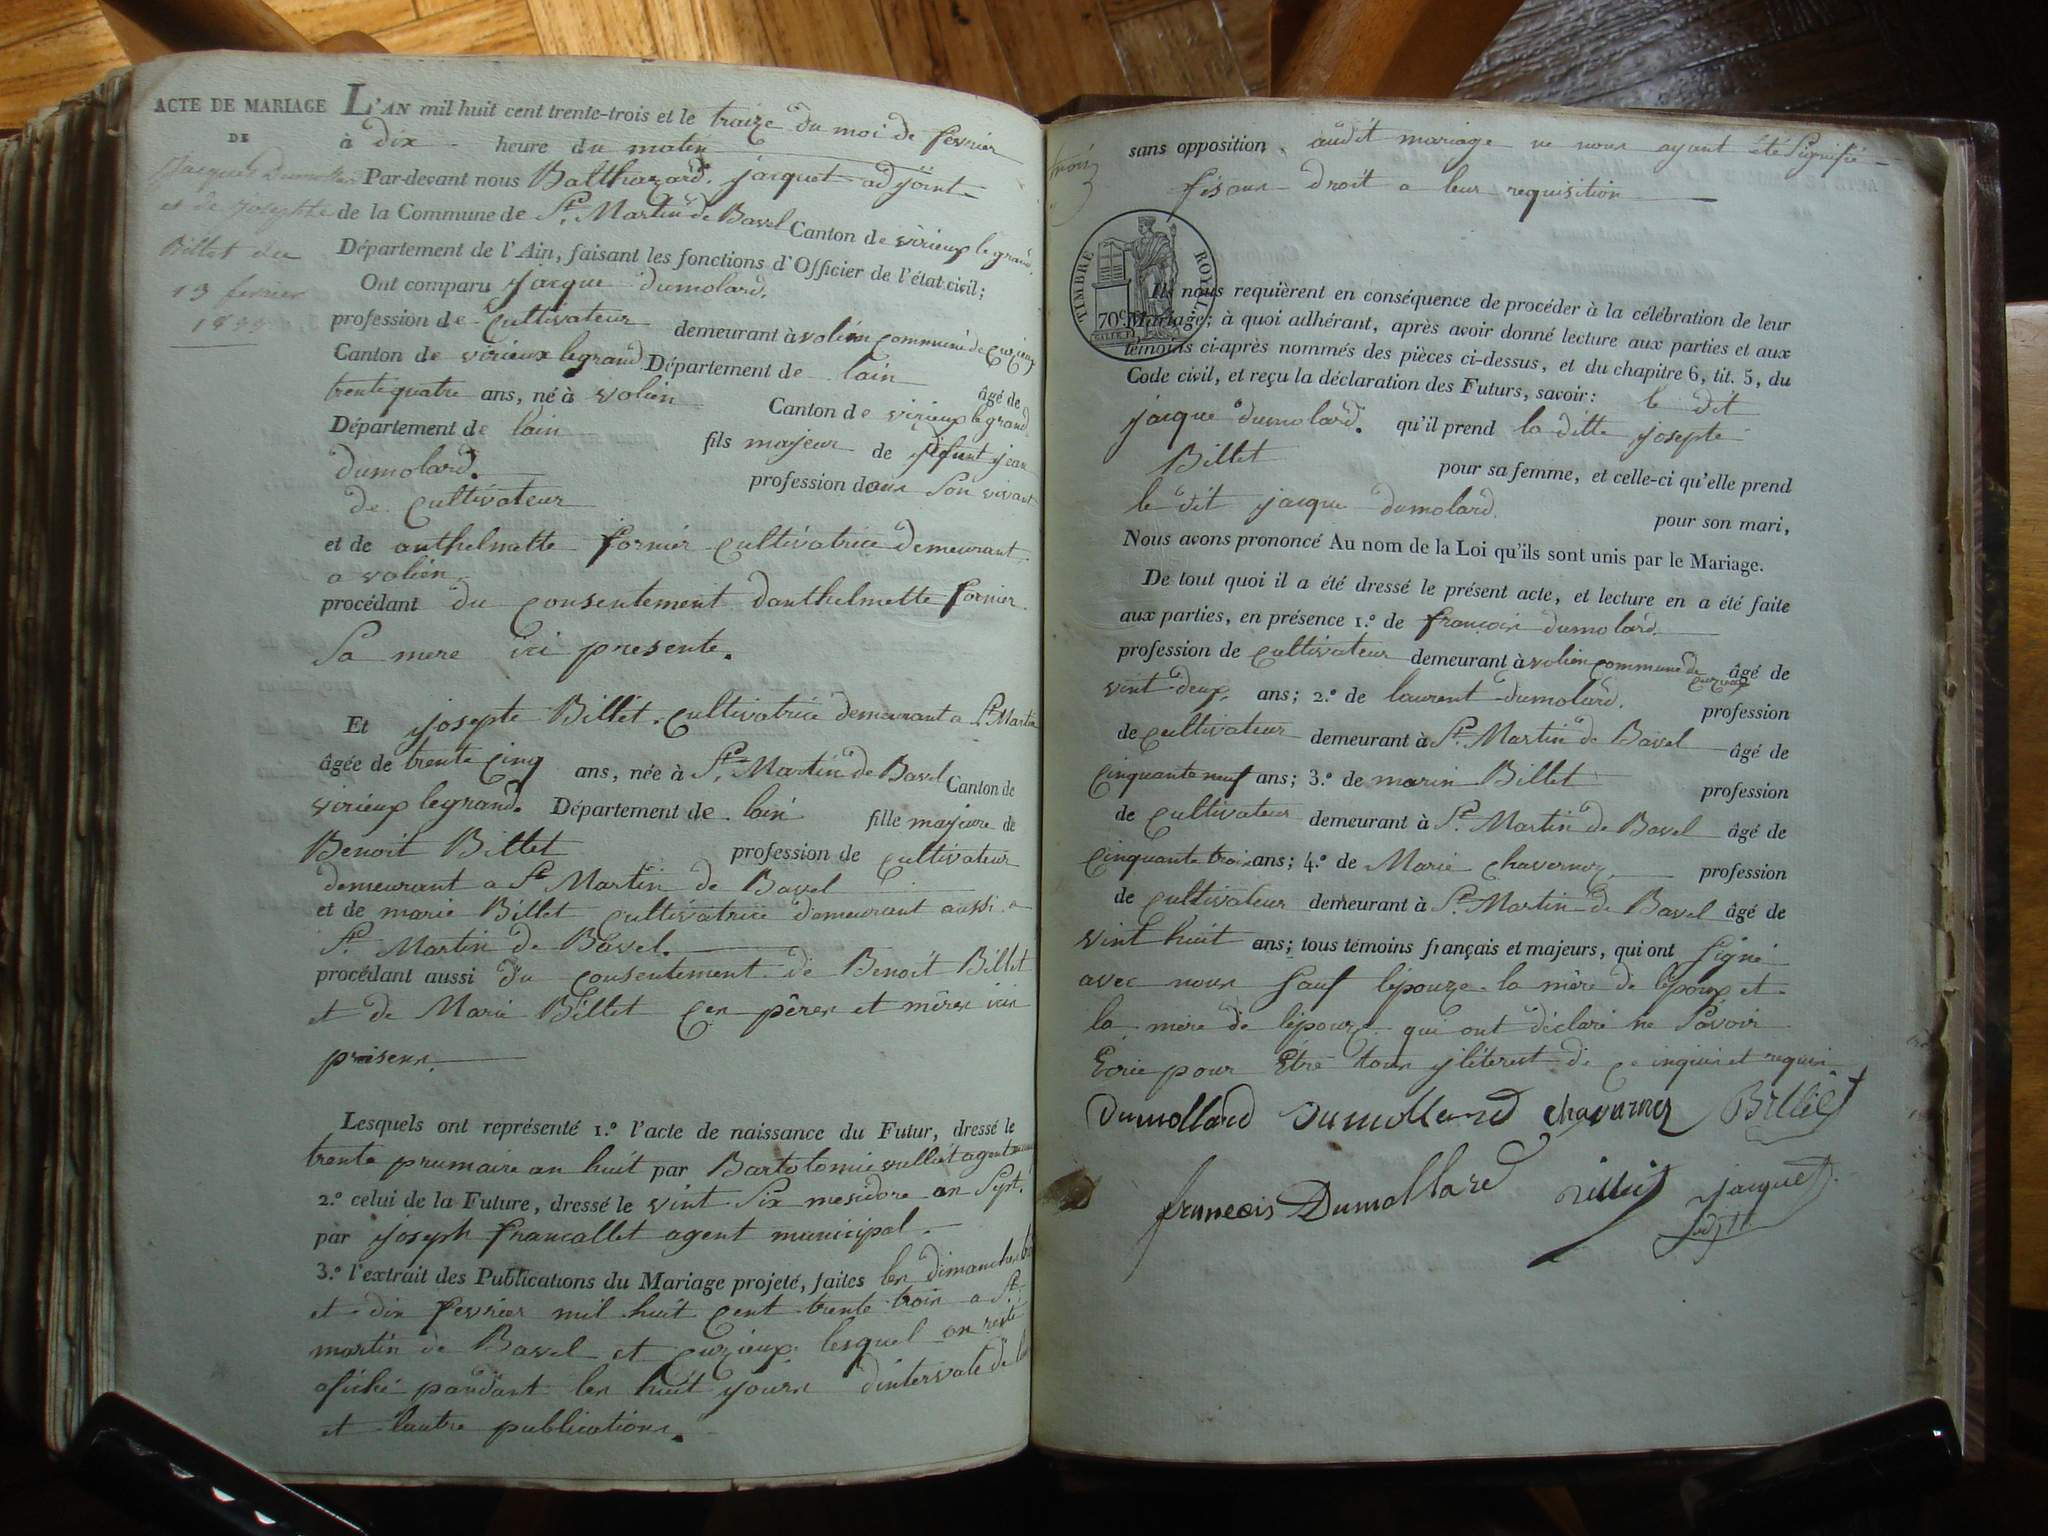 ACTE DE MARIAGE
DE
Jacques Dumollar
et de Josephte
Billet du
13 fevrier
1833
L'AN mil huit cent trente-trois et le traize du moi de fevrier
à dix heure du matin
Par-devant nous Balthazard jacquet adjoint
de la Commune de St. Martin de Bavel Canton de virieux le grand
Département de l'Ain, faisant les fonctions d'Officier de l'état civil;
Ont comparu jacque dumolard.
profession de Cultivateur demeurant à volien commune de Cuzieux
Canton de virieux legrand Département de lain âgé de
trente quatre ans, né à volien Canton de virieux le grand
Département de lain fils majeur de defunt jean
dumolard. profession dans son vivant
de Cultivateur
et de anthelmette fornier cultivatrice demeurant
a volien
procédant du consentement danthelmette fornier
Sa mere ici presente.
Et josepte Billet. Cultivatrice demeurant a St Martin
âgée de trente cinq ans, née à St. Martin de Bavel Canton de
virieux legrand. Département de lain fille majeure de
Benoit Billet profession de cultivateur
demeurant a St Martin de Bavel
et de marie Billet cultivatrice demeurant aussi a
St Martin de Bavel.
procédant aussi du consentement de Benoit Billet
et de Marie Billet Ces pêres et mêres icis
presens.
Lesquels ont représenté 1.º l'acte de naissance du Futur, dressé le
trente prumaire an huit par Bartolomie vulliet agent
2.º celui de la Future, dressé le vint Six mesidore an Sept.
par joseph francallet agent municipal.
3.º l'extrait des Publications du Mariage projeté, faites les dimanches
et dix fevrier mil huit cent trente trois a St
martin de Bavel et Cuzieux lesquel on resté
afiché pandant les huit jours dintervale de
et lautre publications.
sans opposition audit mariage ne nous ayant été Signifié
fesans droit a leur requisition
TIMBRE ROYAL
70c
Ils nous requièrent en conséquence de procéder à la célébration de leur
Mariage; à quoi adhérant, après avoir donné lecture aux parties et aux
témoins ci-après nommés des pièces ci-dessus, et du chapitre 6, tit. 5, du
Code civil, et reçu la déclaration des Futurs, savoir: le dit
jacque dumolard. qu'il prend la ditte josepte
Billet pour sa femme, et celle-ci qu'elle prend
le dit jacque dumolard. pour son mari,
Nous avons prononcé Au nom de la Loi qu'ils sont unis par le Mariage.
De tout quoi il a été dressé le présent acte, et lecture en a été faite
aux parties, en présence 1.º de françois dumolard.
profession de cultivateur demeurant à volien commune de Cuzieux âgé de
vint deux ans; 2.º de laurent dumolard. profession
de Cultivateur demeurant à St. Martin de Bavel âgé de
Cinquante neuf ans; 3.º de marin Billet profession
de Cultivateur demeurant à St. Martin de Bavel âgé de
Cinquante trois ans; 4.º de Marie Chavernoz profession
de Cultivateur demeurant à St. Martin de Bavel âgé de
vint huit ans; tous témoins français et majeurs, qui ont Signé
avec nous Sauf lépouze la mère de lépoux et
la mère de lépouze qui ont déclaré ne Savoir
Ecrie pour Être tous jliterest de ce inquis et requis
Dumollard Dumollard chavernoz Billiet
francois Dumollard Billiet jacquet
adjt